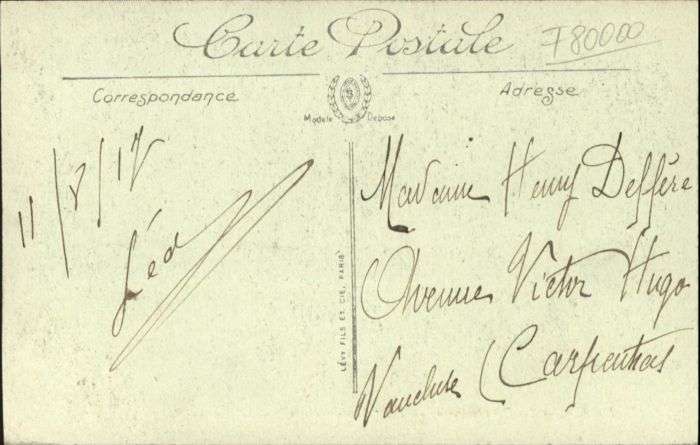 Carte Postale
F80000
Correspondance
Adresse
Modèle Déposé
11/8/17
Léo
LÉVY FILS ET CIE, PARIS
Madame Henry Deffère
Avenue Victor Hugo
Vaucluse (Carpentras